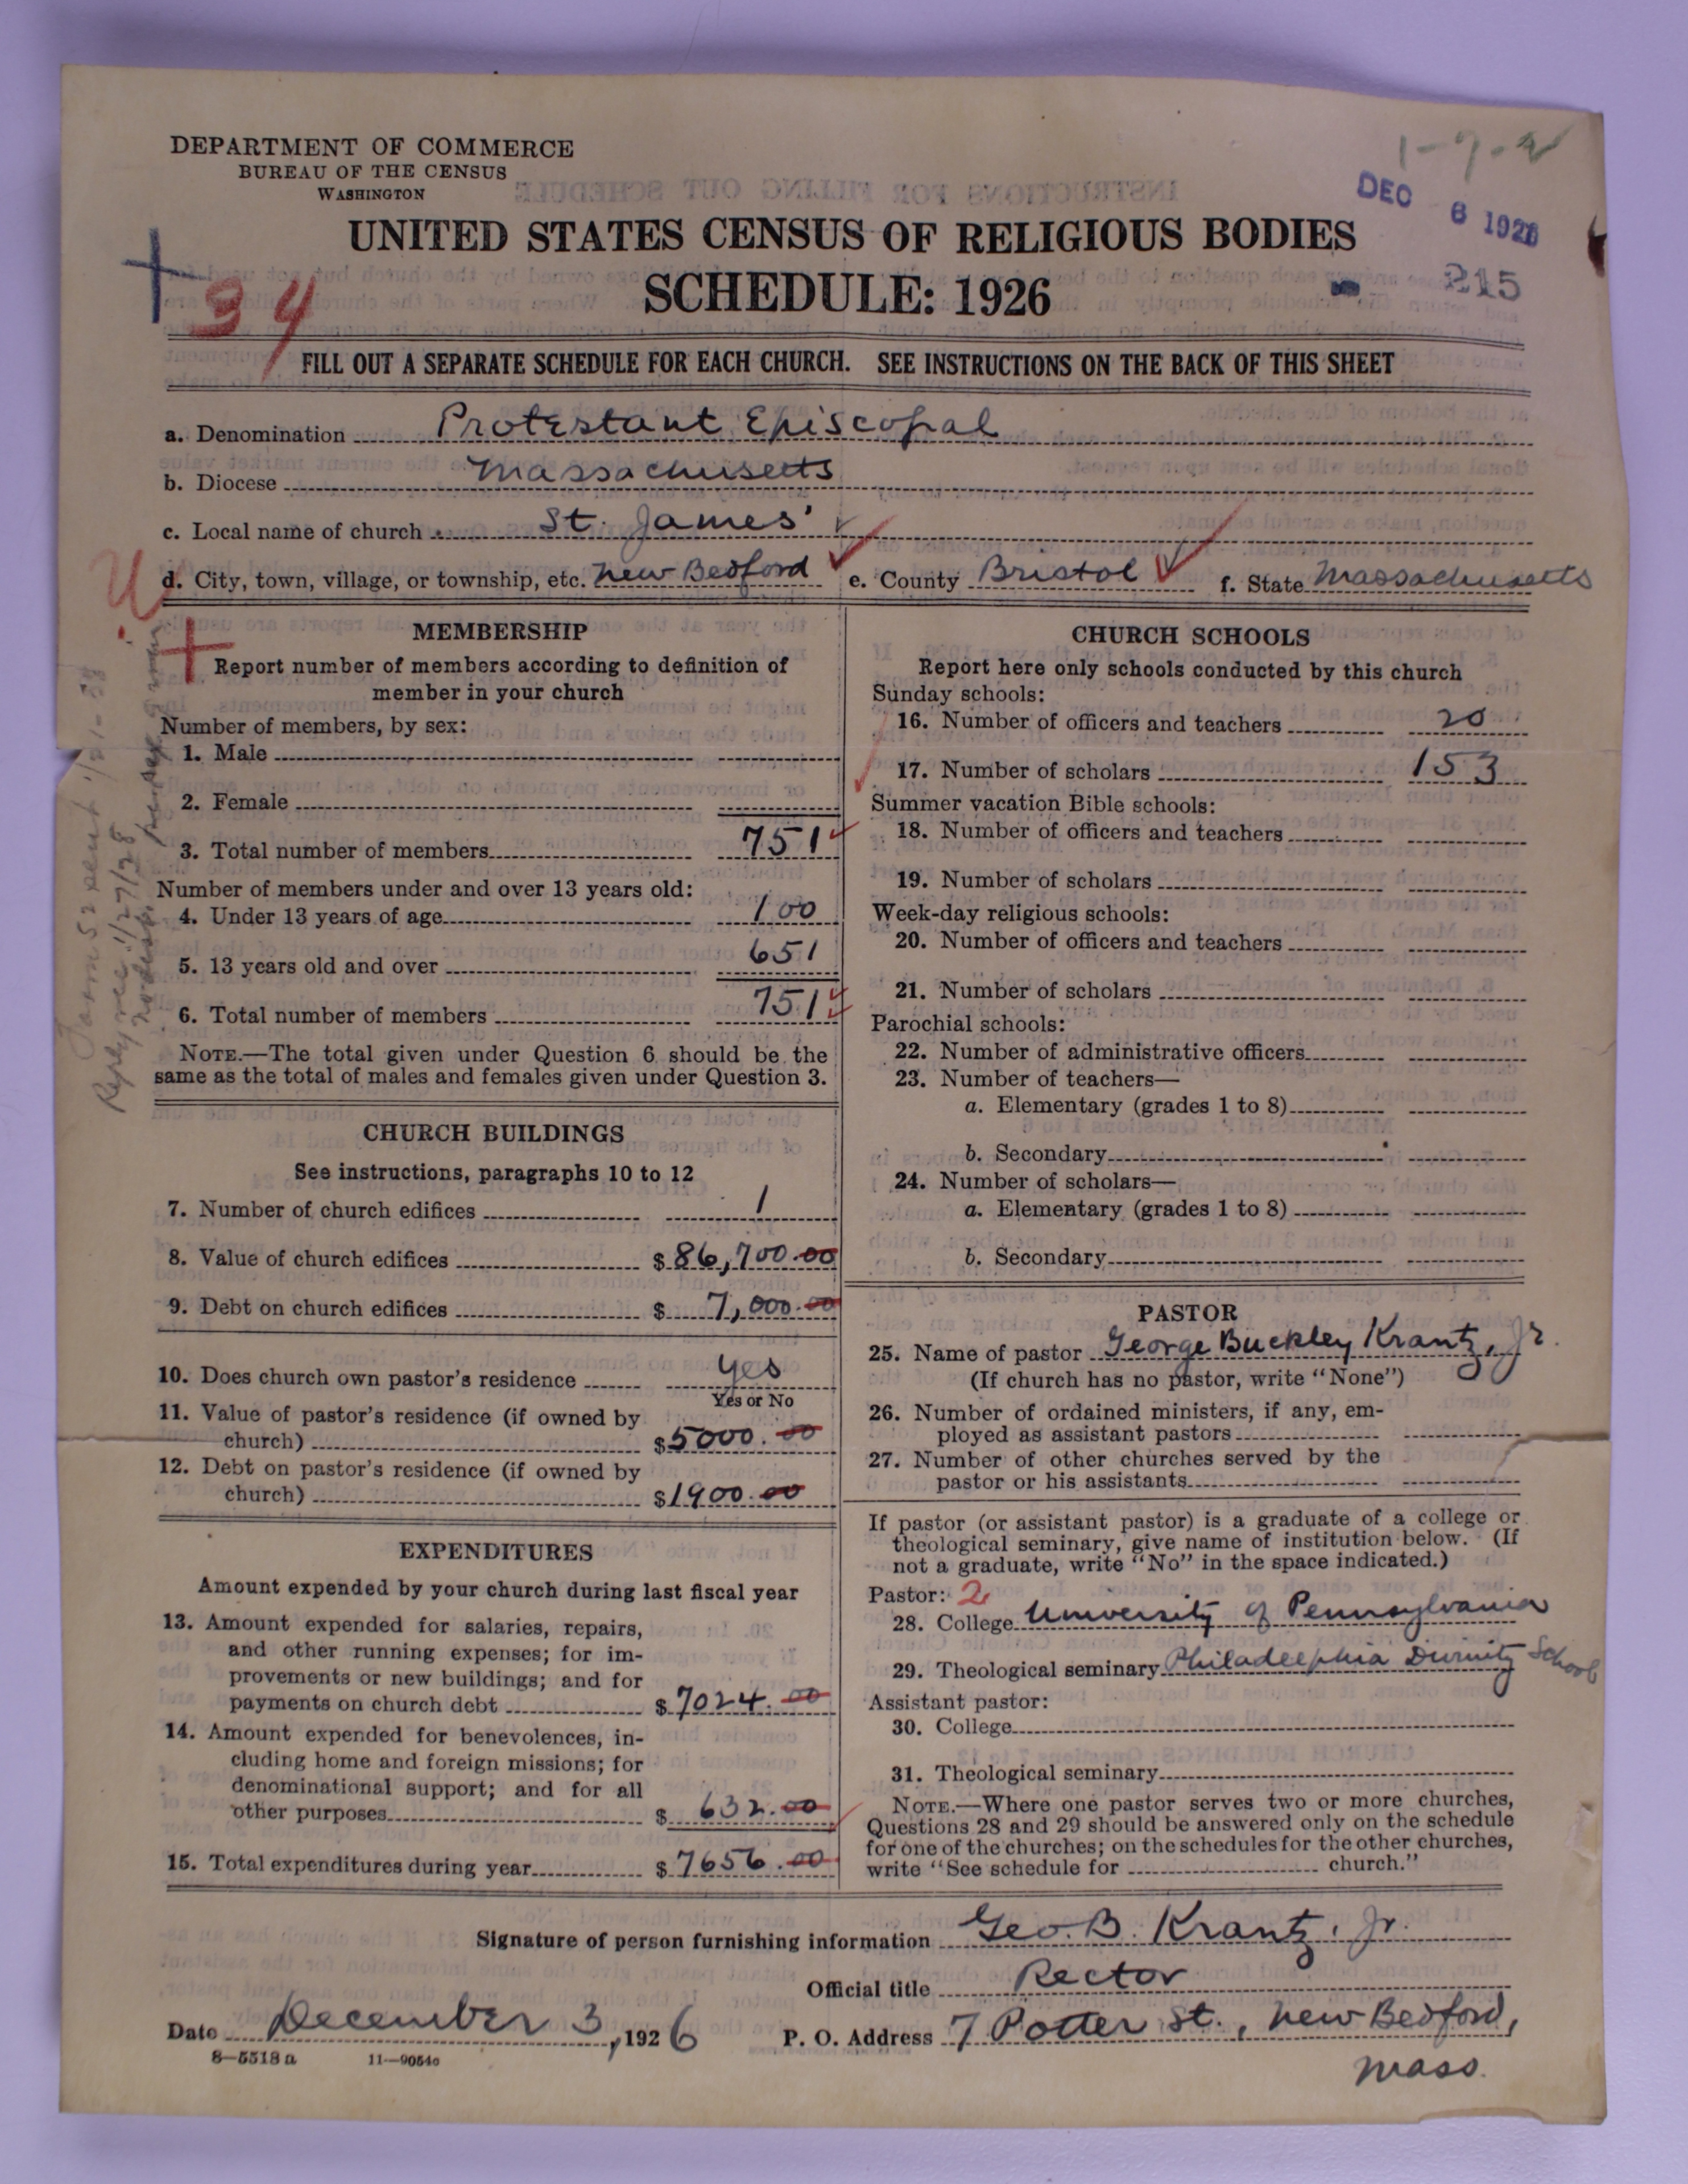 1-7-2
DEPARTMENT OF COMMERCE
BUREAU OF THE CENSUS
WASHINGTON
DEC 6 1926
UNITED STATES CENSUS OF RELIGIOUS BODIES
SCHEDULE: 1926
215
34
FILL OUT A SEPARATE SCHEDULE FOR EACH CHURCH. SEE INSTRUCTIONS ON THE BACK OF THIS SHEET
a. Denomination Protestant Episcopal
b. Diocese Massachusetts
c. Local name of church St. James'
d. City, town, village, or township, etc. New Bedford e. County Bristol f. State Massachusetts
U
MEMBERSHIP
Report number of members according to definition of
member in your church
Number of members, by sex:
1. Male
2. Female
3. Total number of members 751
Number of members under and over 13 years old:
4. Under 13 years of age 100
5. 13 years old and over 651
6. Total number of members 751
NOTE.—The total given under Question 6 should be the
same as the total of males and females given under Question 3.
Form 52 sent 1/21-28
Reply rec. 1/27/28
CHURCH BUILDINGS
See instructions, paragraphs 10 to 12
7. Number of church edifices 1
8. Value of church edifices $86,700.00
9. Debt on church edifices $7,000.00
10. Does church own pastor's residence yes
Yes or No
11. Value of pastor's residence (if owned by
church) $5000.00
12. Debt on pastor's residence (if owned by
church) $1900.00
EXPENDITURES
Amount expended by your church during last fiscal year
13. Amount expended for salaries, repairs,
and other running expenses; for im-
provements or new buildings; and for
payments on church debt $7024.00
14. Amount expended for benevolences, in-
cluding home and foreign missions; for
denominational support; and for all
other purposes $632.00
15. Total expenditures during year $7656.00
CHURCH SCHOOLS
Report here only schools conducted by this church
Sunday schools:
16. Number of officers and teachers 20
17. Number of scholars 153
Summer vacation Bible schools:
18. Number of officers and teachers
19. Number of scholars
Week-day religious schools:
20. Number of officers and teachers
21. Number of scholars
Parochial schools:
22. Number of administrative officers
23. Number of teachers—
a. Elementary (grades 1 to 8)
b. Secondary
24. Number of scholars—
a. Elementary (grades 1 to 8)
b. Secondary
PASTOR
25. Name of pastor George Buckley Krantz, Jr.
(If church has no pastor, write "None")
26. Number of ordained ministers, if any, em-
ployed as assistant pastors
27. Number of other churches served by the
pastor or his assistants
If pastor (or assistant pastor) is a graduate of a college or
theological seminary, give name of institution below. (If
not a graduate, write "No" in the space indicated.)
Pastor: 2
28. College University of Pennsylvania
29. Theological seminary Philadelphia Divinity School
Assistant pastor:
30. College
31. Theological seminary
NOTE.—Where one pastor serves two or more churches,
Questions 28 and 29 should be answered only on the schedule
for one of the churches; on the schedules for the other churches,
write "See schedule for church."
Signature of person furnishing information Geo. B. Krantz, Jr.
Official title Rector
Date December 3, 1926 P. O. Address 7 Potter St., New Bedford,
Mass.
8—5518 a 11—9054c